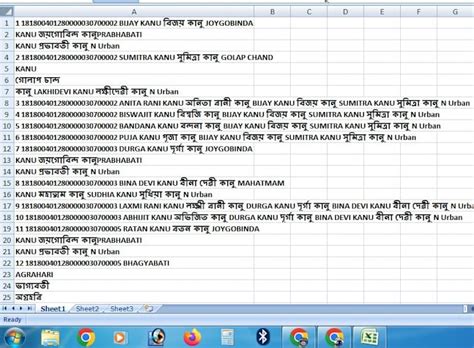 A B C D E F G
1 1 18180040128000003070002 BIJAY KANU বিজয় কানু JOYGOBINDA
2 KANU জয়গোবিন্দ কানুPRABHABATI
3 KANU প্রভাবতী কানু N Urban
4 2 18180040128000003070002 SUMITRA KANU সুমিত্রা কানু GOLAP CHAND
5 KANU
6 গোলাপ চান্দ
7 কানু LAKHIDEVI KANU লক্ষীদেৱী কানু N Urban
8 3 18180040128000003070002 ANITA RANI KANU অনিতা ৰানী কানু BIJAY KANU বিজয় কানু SUMITRA KANU সুমিত্রা কানু N Urban
9 4 18180040128000003070002 BISWAJIT KANU বিশ্বজি কানু BIJAY KANU বিজয় কানু SUMITRA KANU সুমিত্রা কানু N Urban
10 5 18180040128000003070002 BANDANA KANU বন্দনা কানু BIJAY KANU বিজয় কানু SUMITRA KANU সুমিত্রা কানু N Urban
11 6 18180040128000003070002 PUJA KANU পূজা কানু BIJAY KANU বিজয় কানু SUMITRA KANU সুমিত্রা কানু N Urban
12 7 18180040128000003070003 DURGA KANU দূর্গা কানু JOYGOBINDA
13 KANU জয়গোবিন্দ কানুPRABHABATI
14 KANU প্রভাবতী কানু N Urban
15 8 18180040128000003070003 BINA DEVI KANU বীনা দেৱী কানু MAHATMAM
16 KANU মহাত্মম কানু SUDHIA KANU সুধিয়া কানু N Urban
17 9 18180040128000003070003 LAXMI RANI KANU লক্ষ্মী ৰানী কানু DURGA KANU দূর্গা কানু BINA DEVI KANU বীনা দেৱী কানু N Urba
18 10 18180040128000003070003 ABHIJIT KANU অভিজিত কানু DURGA KANU দূর্গা কানু BINA DEVI KANU বীনা দেৱী কানু N Urban
19 11 18180040128000003070005 RATAN KANU ৰতন কানু JOYGOBINDA
20 KANU জয়গোবিন্দ কানুPRABHABATI
21 KANU প্রভাবতী কানু N Urban
22 12 18180040128000003070005 BHAGYABATI
23 AGRAHARI
24 ভাগ্যবতী
25 অগ্রহৰি
Sheet1 Sheet2 Sheet3
Ready